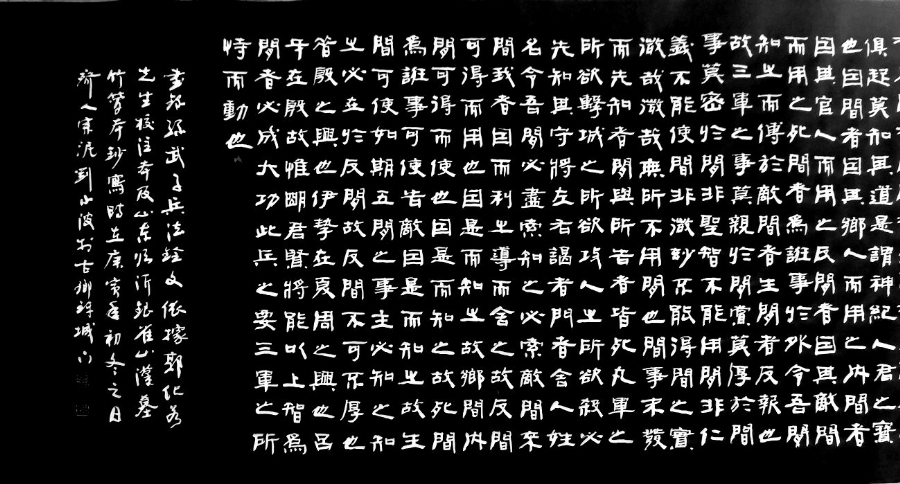 俱起莫知其道是謂神紀人君之寶
也因間者因其鄉人而用之內間者
因其官人而用之反間者因其敵間
而用之死間者爲誑事於外令吾間
知之而傳於敵間者生間者反報也
故三軍之事莫親於間賞莫厚於間
事莫密於間非聖智不能用間非仁
義不能使間非微妙不能得間之實
微哉微哉無所不用間也間事未發
而先知者間與所告者皆死凡軍之
所欲擊城之所欲攻人之所欲殺必
先知其守將左右謁者門者舍人姓
名令吾間必盡索知之必索敵間來
間我者因而利之導而舍之故反間
可得而用也因是而知之故鄉間內
間可得而使也因是而知之故死間
爲誑事可使告敵因是而知之故生
間可使如期五間之事主必知之知
之必在於反間故反間不可不厚也
昔殷之興也伊摯在夏周之興也呂
牙在殷故惟明君賢將能以上智爲
間者必成大功此兵之要三軍之所
恃而動也
書錄孫武子兵法全文依據郭化若
先生校注本及山東臨沂銀雀山漢墓
竹簡本鈔寫時在庚寅年初冬之日
齊人宋 小波於古 城